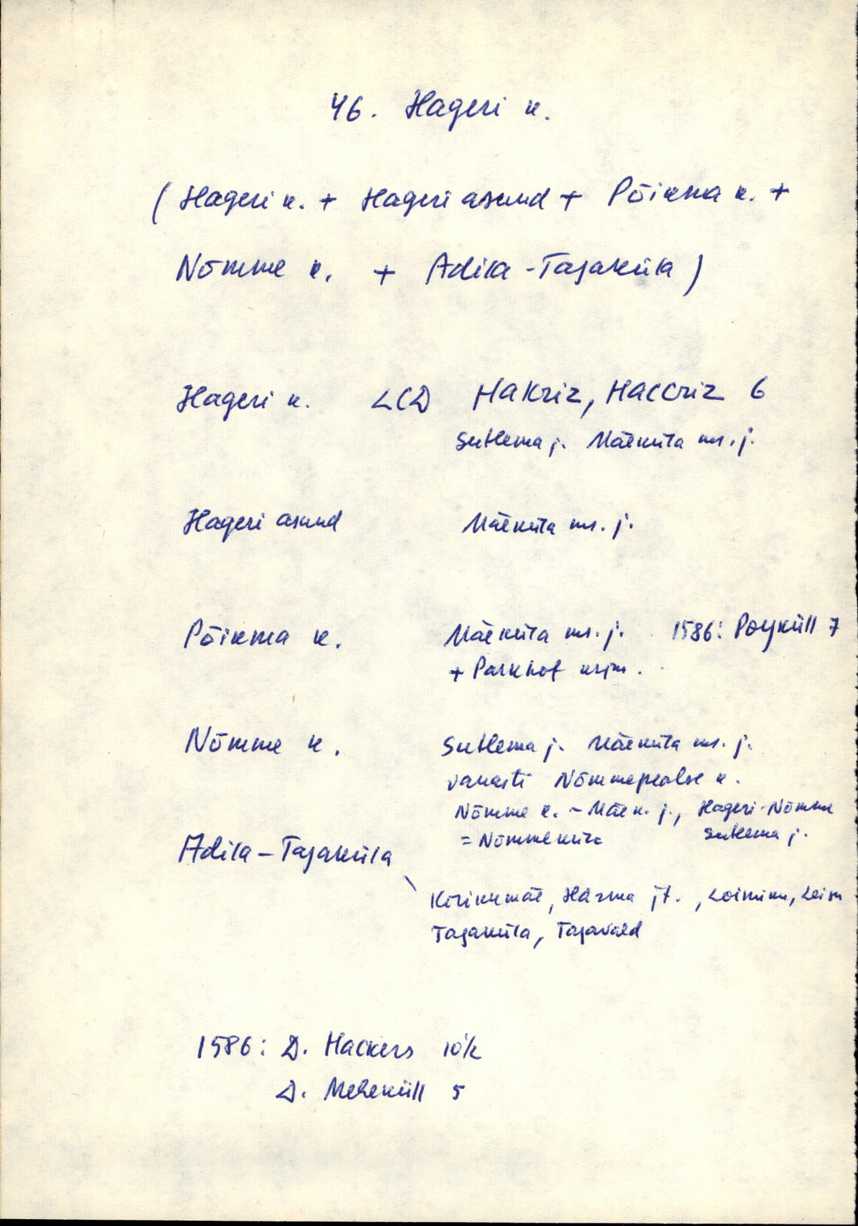 46. Hageri k.
(Hageri k. + Hageri asund + Põikma k. +
Nõmme k. + Adila-Tagaküla)
Hageri k. LCD Hakriz, Haccriz 6
Sutlema j. Mäeküla mr. j.
Hageri asund Mäeküla mr. j.
Põikma k. Mäeküla mr. j. 1586: Poyküll 7
+ Parkhof krjm.
Nõmme k. Sutlema j. Mäeküla mr. j.
vanasti Nõmmepealse k.
Nõmme k. - Mäek. j., Hageri-Nõmme
= Nõmmeküla Sutlema j.
Adila-Tagaküla
Kirikumäe, Härma jt.,
Tagaküla, Tagavald
1586: D. Hackers 10k
D. Meheküll 5